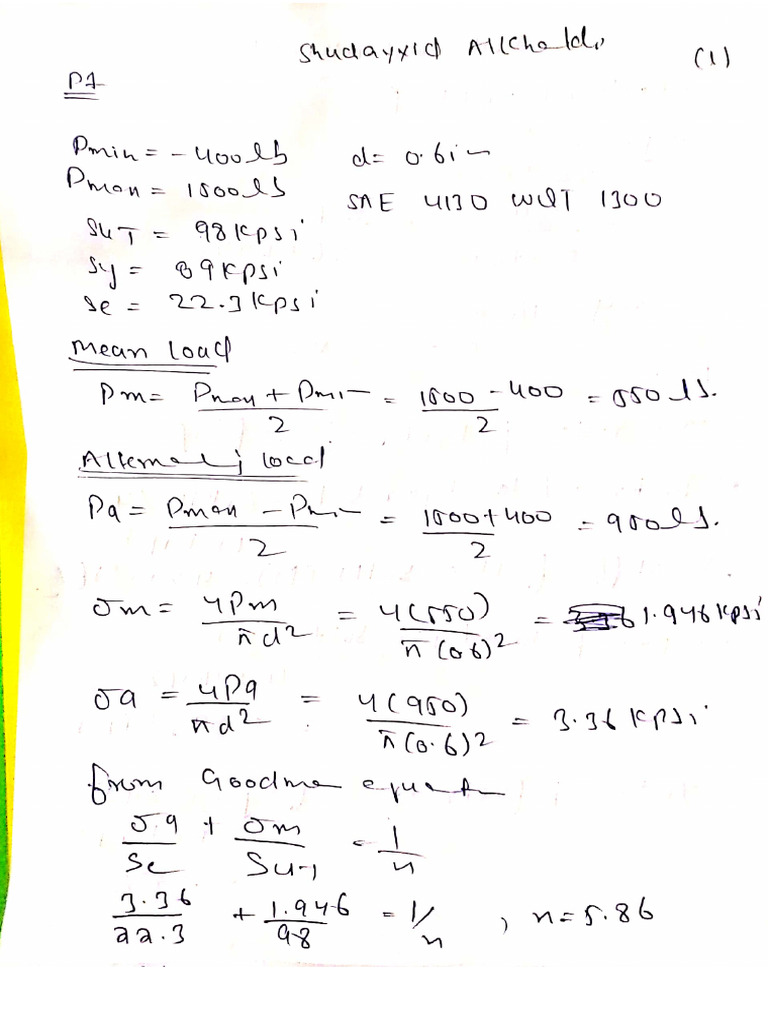 (1)
P1
Pmin = - 400lb d= 0.6in
Pmax = 1500lb SAE 4130 WQT 1300
SUT = 98kpsi
Sy = 89kpsi
Se = 22.3kpsi
Mean Load
Pm = Pmax + Pmin / 2 = 1500 - 400 / 2 = 550 lb.
Alternating load
Pa = Pmax - Pmin / 2 = 1500 + 400 / 2 = 950lb.
σm = 4Pm / πd² = 4(550) / π(0.6)² = 1.946kpsi
σa = 4Pa / πd² = 4(950) / π(0.6)² = 3.36kpsi
from Goodman equation
σa / Se + σm / Sut = 1 / n
3.36 / 22.3 + 1.946 / 98 = 1/n , n = 5.86